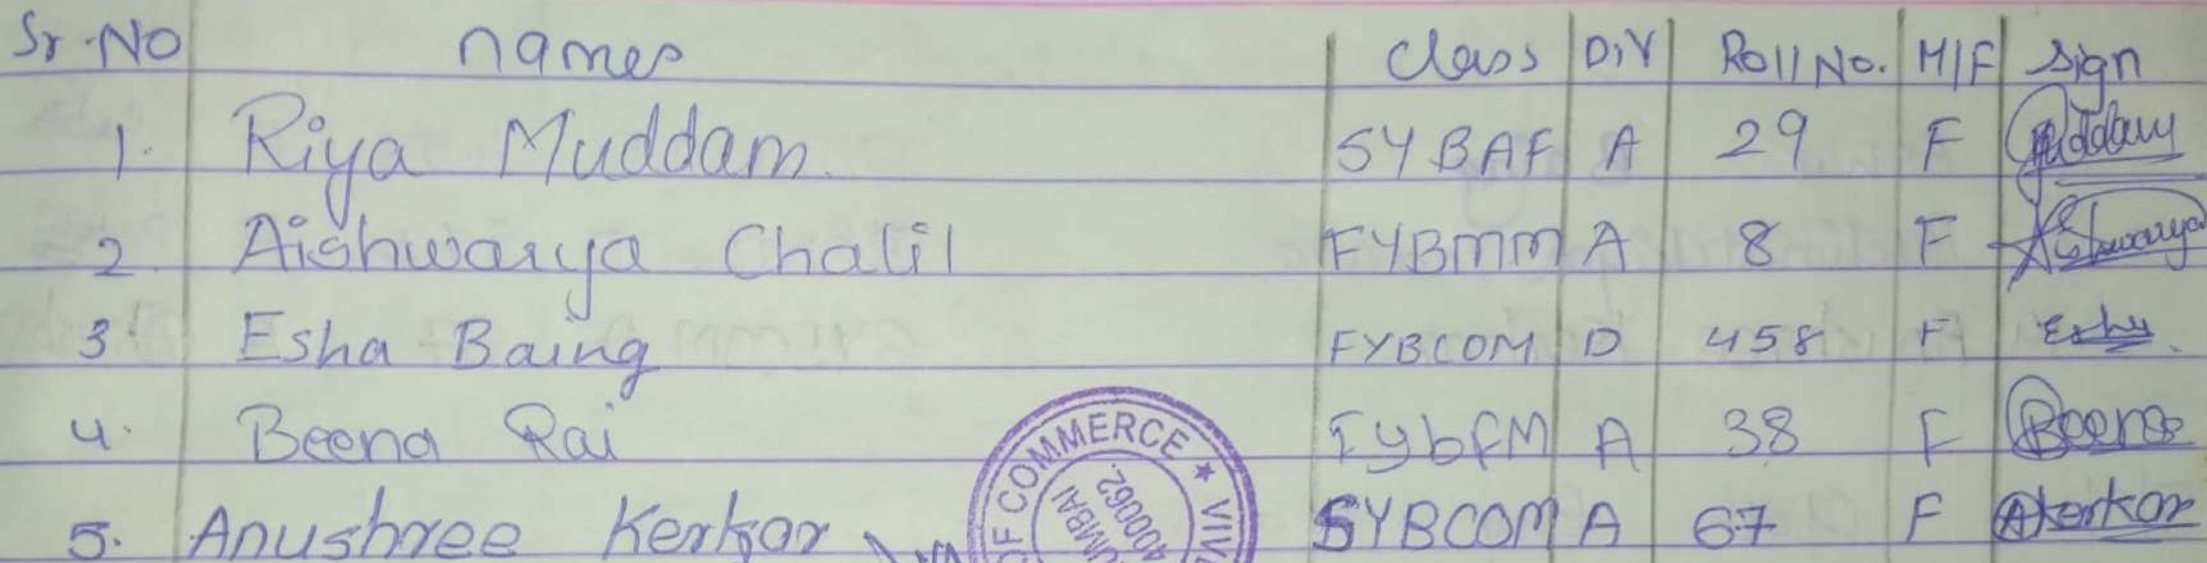 Sr.No names Class Div Roll No. M/F Sign
1. Riya Muddam. SYBAF A 29 F Muddam
2 Aishwarya Chalil FYBMM A 8 F Aishwarya
3. Esha Baing FYBCOM D 458 F Esha
4. Beena Rai FybFM A 38 F Beena
5. Anushree Kerkar SYBCOM A 67 F AKerkar
OF COMMERCE ★ VIV
MUMBAI
400062.